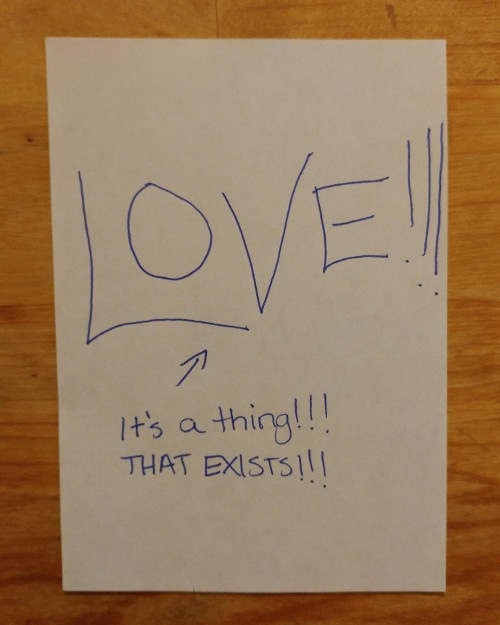 LOVE!!!
It's a thing!!!
THAT EXISTS!!!